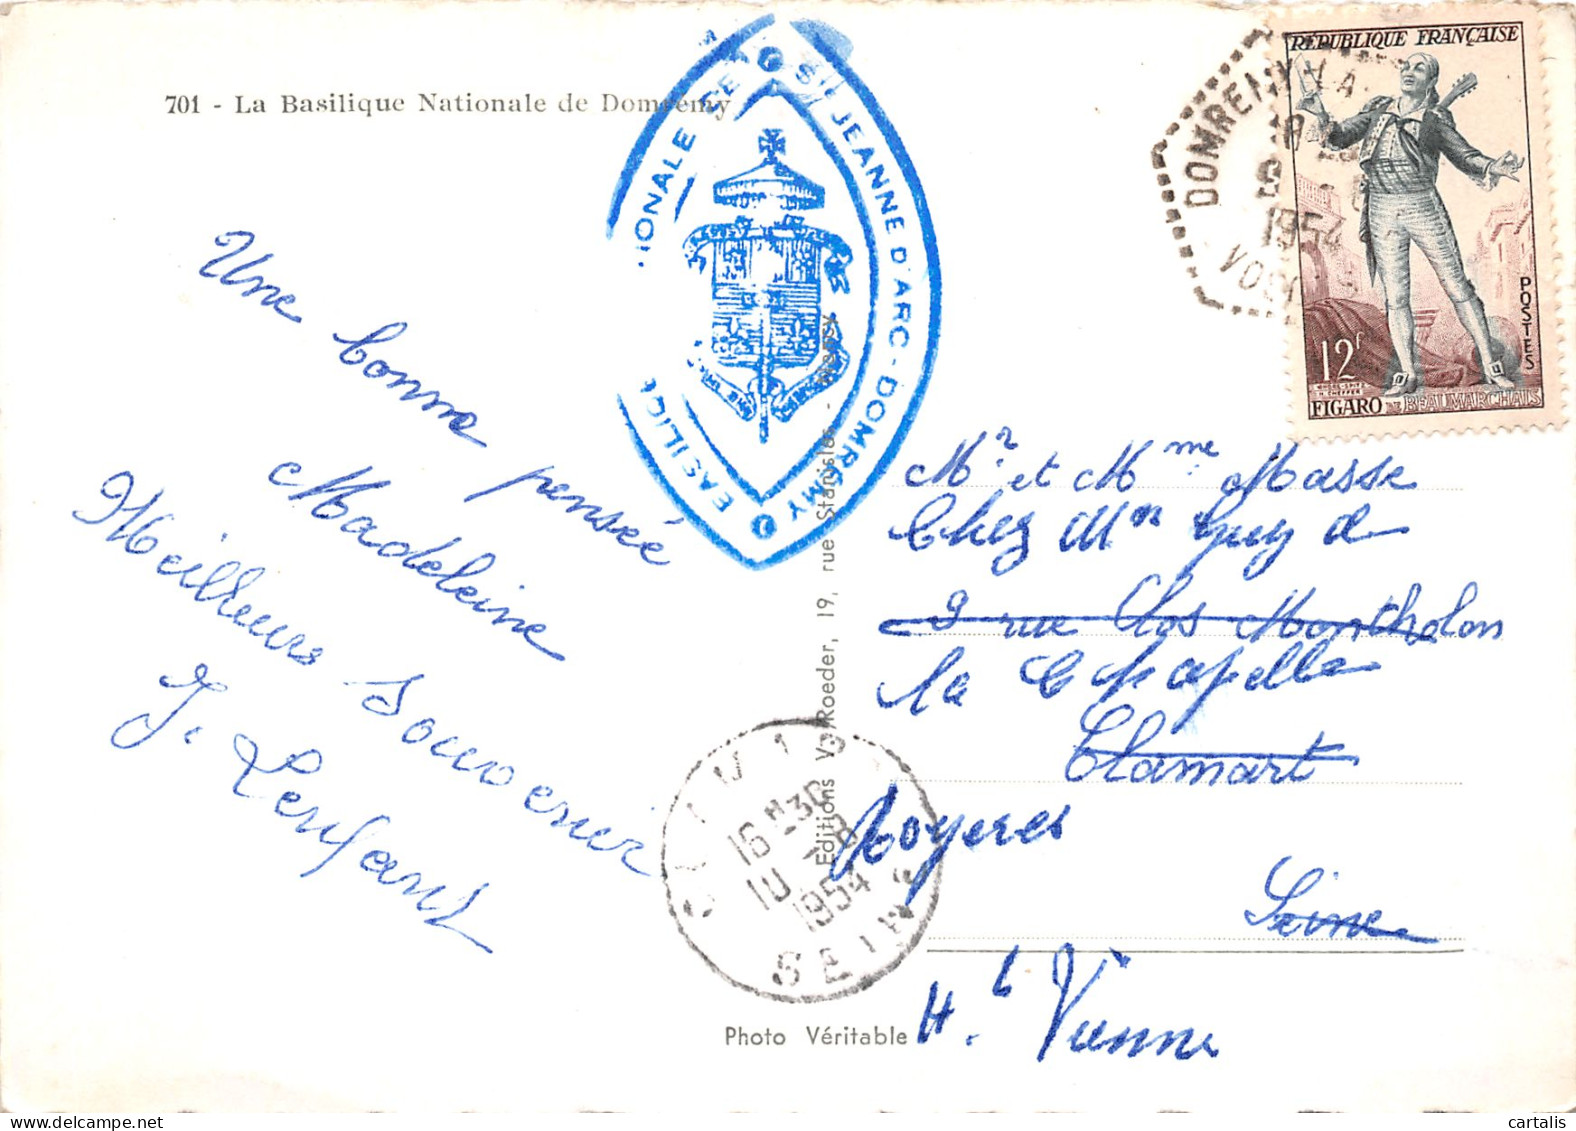 701 - La Basilique Nationale de Domremy
BASILIQUE NATIONALE DE
STE JEANNE D'ARC - DOMRÉMY
Une bonne pensée
Madeleine
Meilleurs Souvenir
J. Lenfant
Editions V. Roeder, 19, rue Stanislas - Nancy
Photo Véritable
DOMREMY-LA
1954
VOSGES
RÉPUBLIQUE FRANÇAISE
POSTES
12F
FIGARO DE BEAUMARCHAIS
Mr et Mme Masse
Chez Mr Guy
9 rue Clos Montholon
la Chapelle
Clamart
Noyeres
Seine
Hte Vienne
16H30
10 -8
1954
SEINE
cartalis